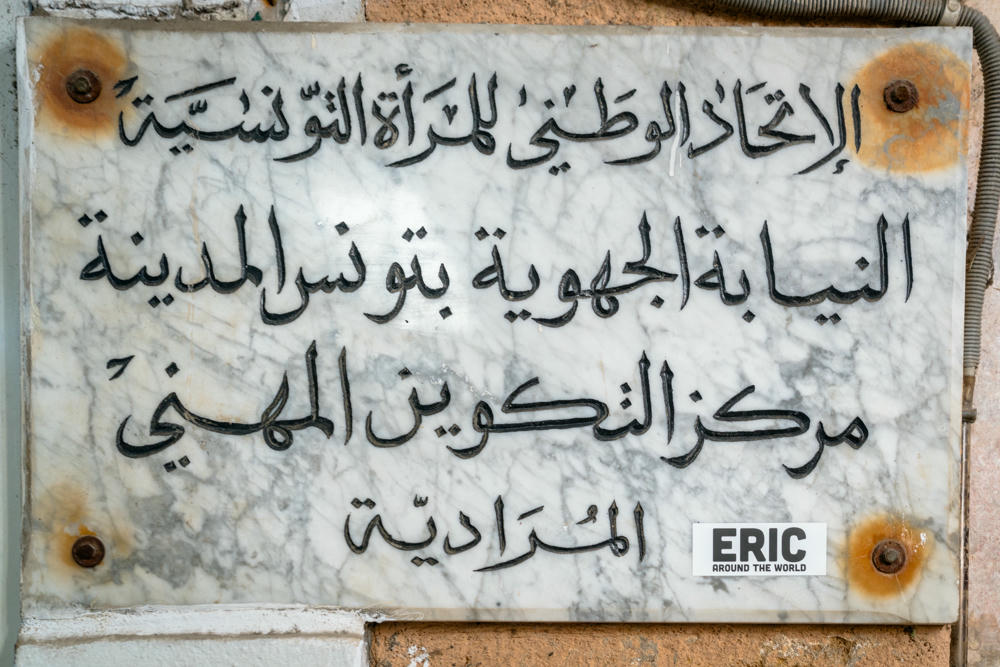 الإتحَاد الوطَني للمَرأة التونسيَّة
النيابة الجهوية بتونس المدينة
مركز التكوين المهني
المُرَاديّة
ERIC
AROUND THE WORLD